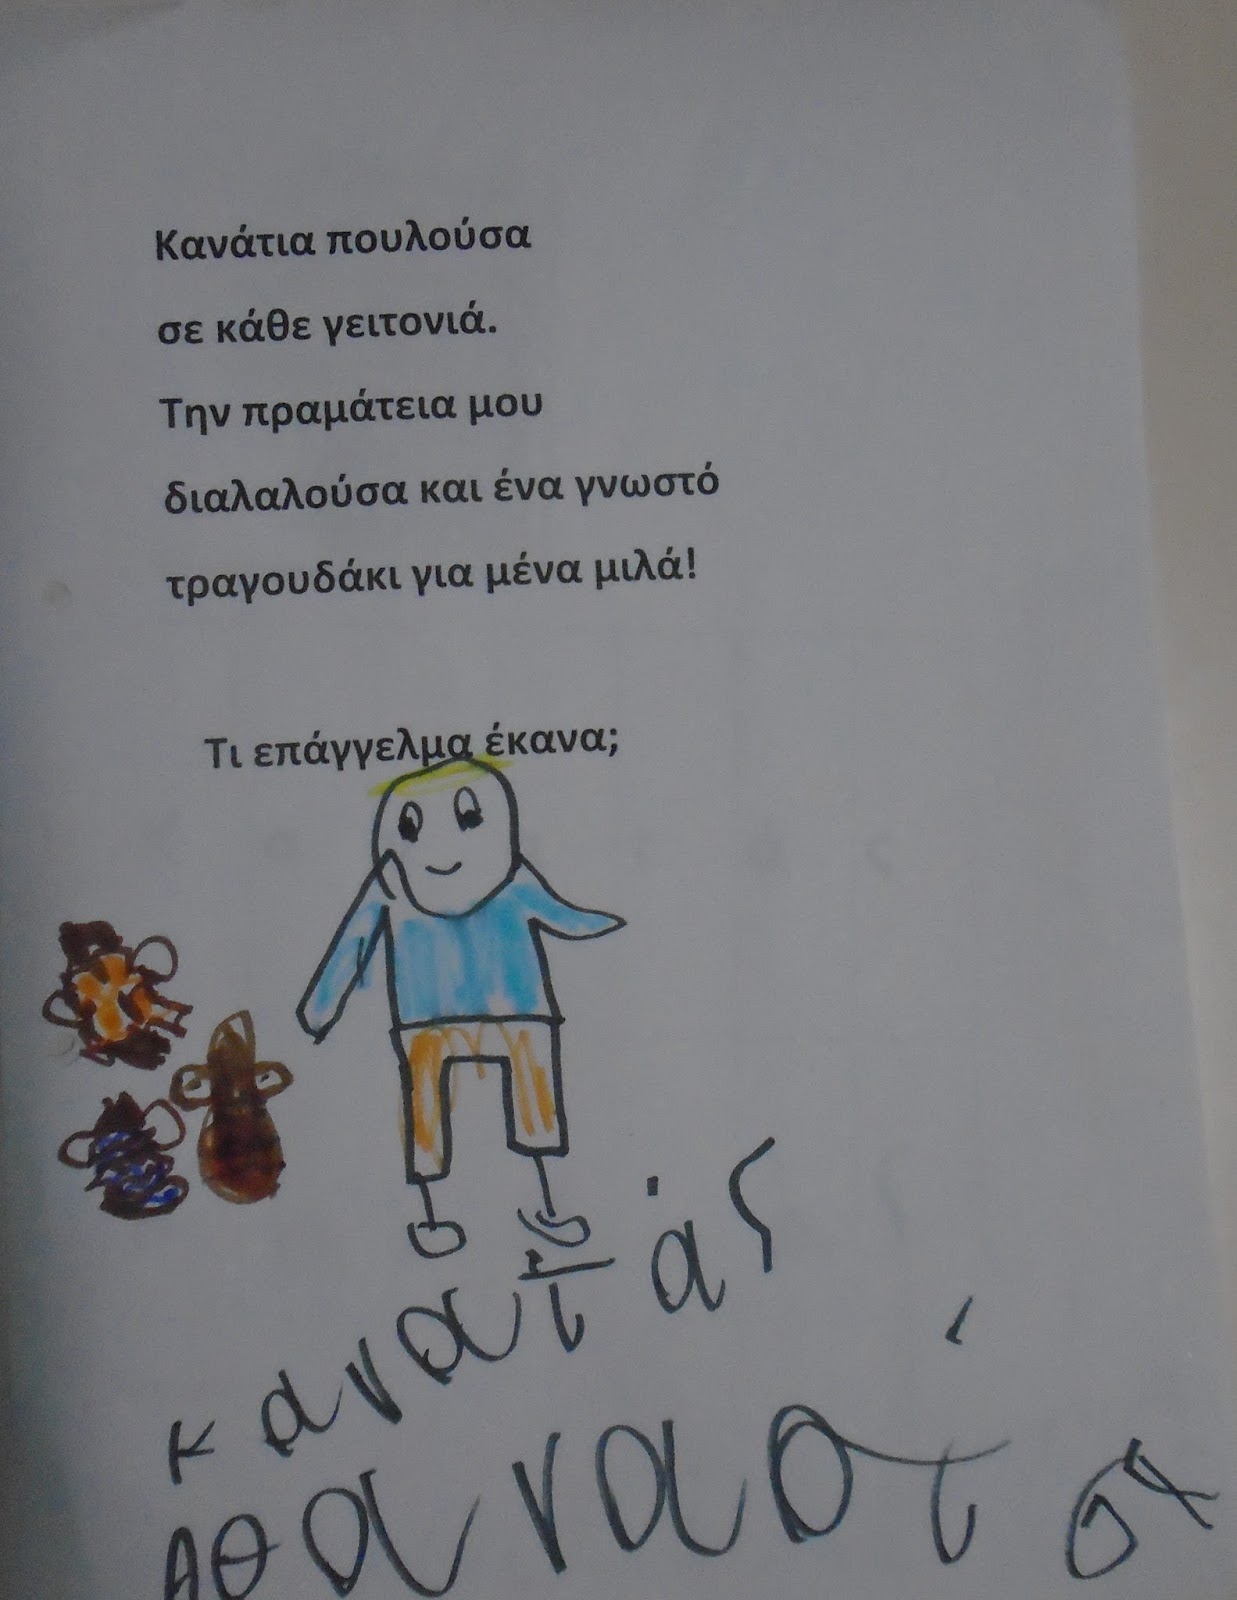 Κανάτια πουλούσα
σε κάθε γειτονιά.
Την πραμάτεια μου
διαλαλούσα και ένα γνωστό
τραγουδάκι για μένα μιλά!
Τι επάγγελμα έκανα;
κανατάς
Αθανασία